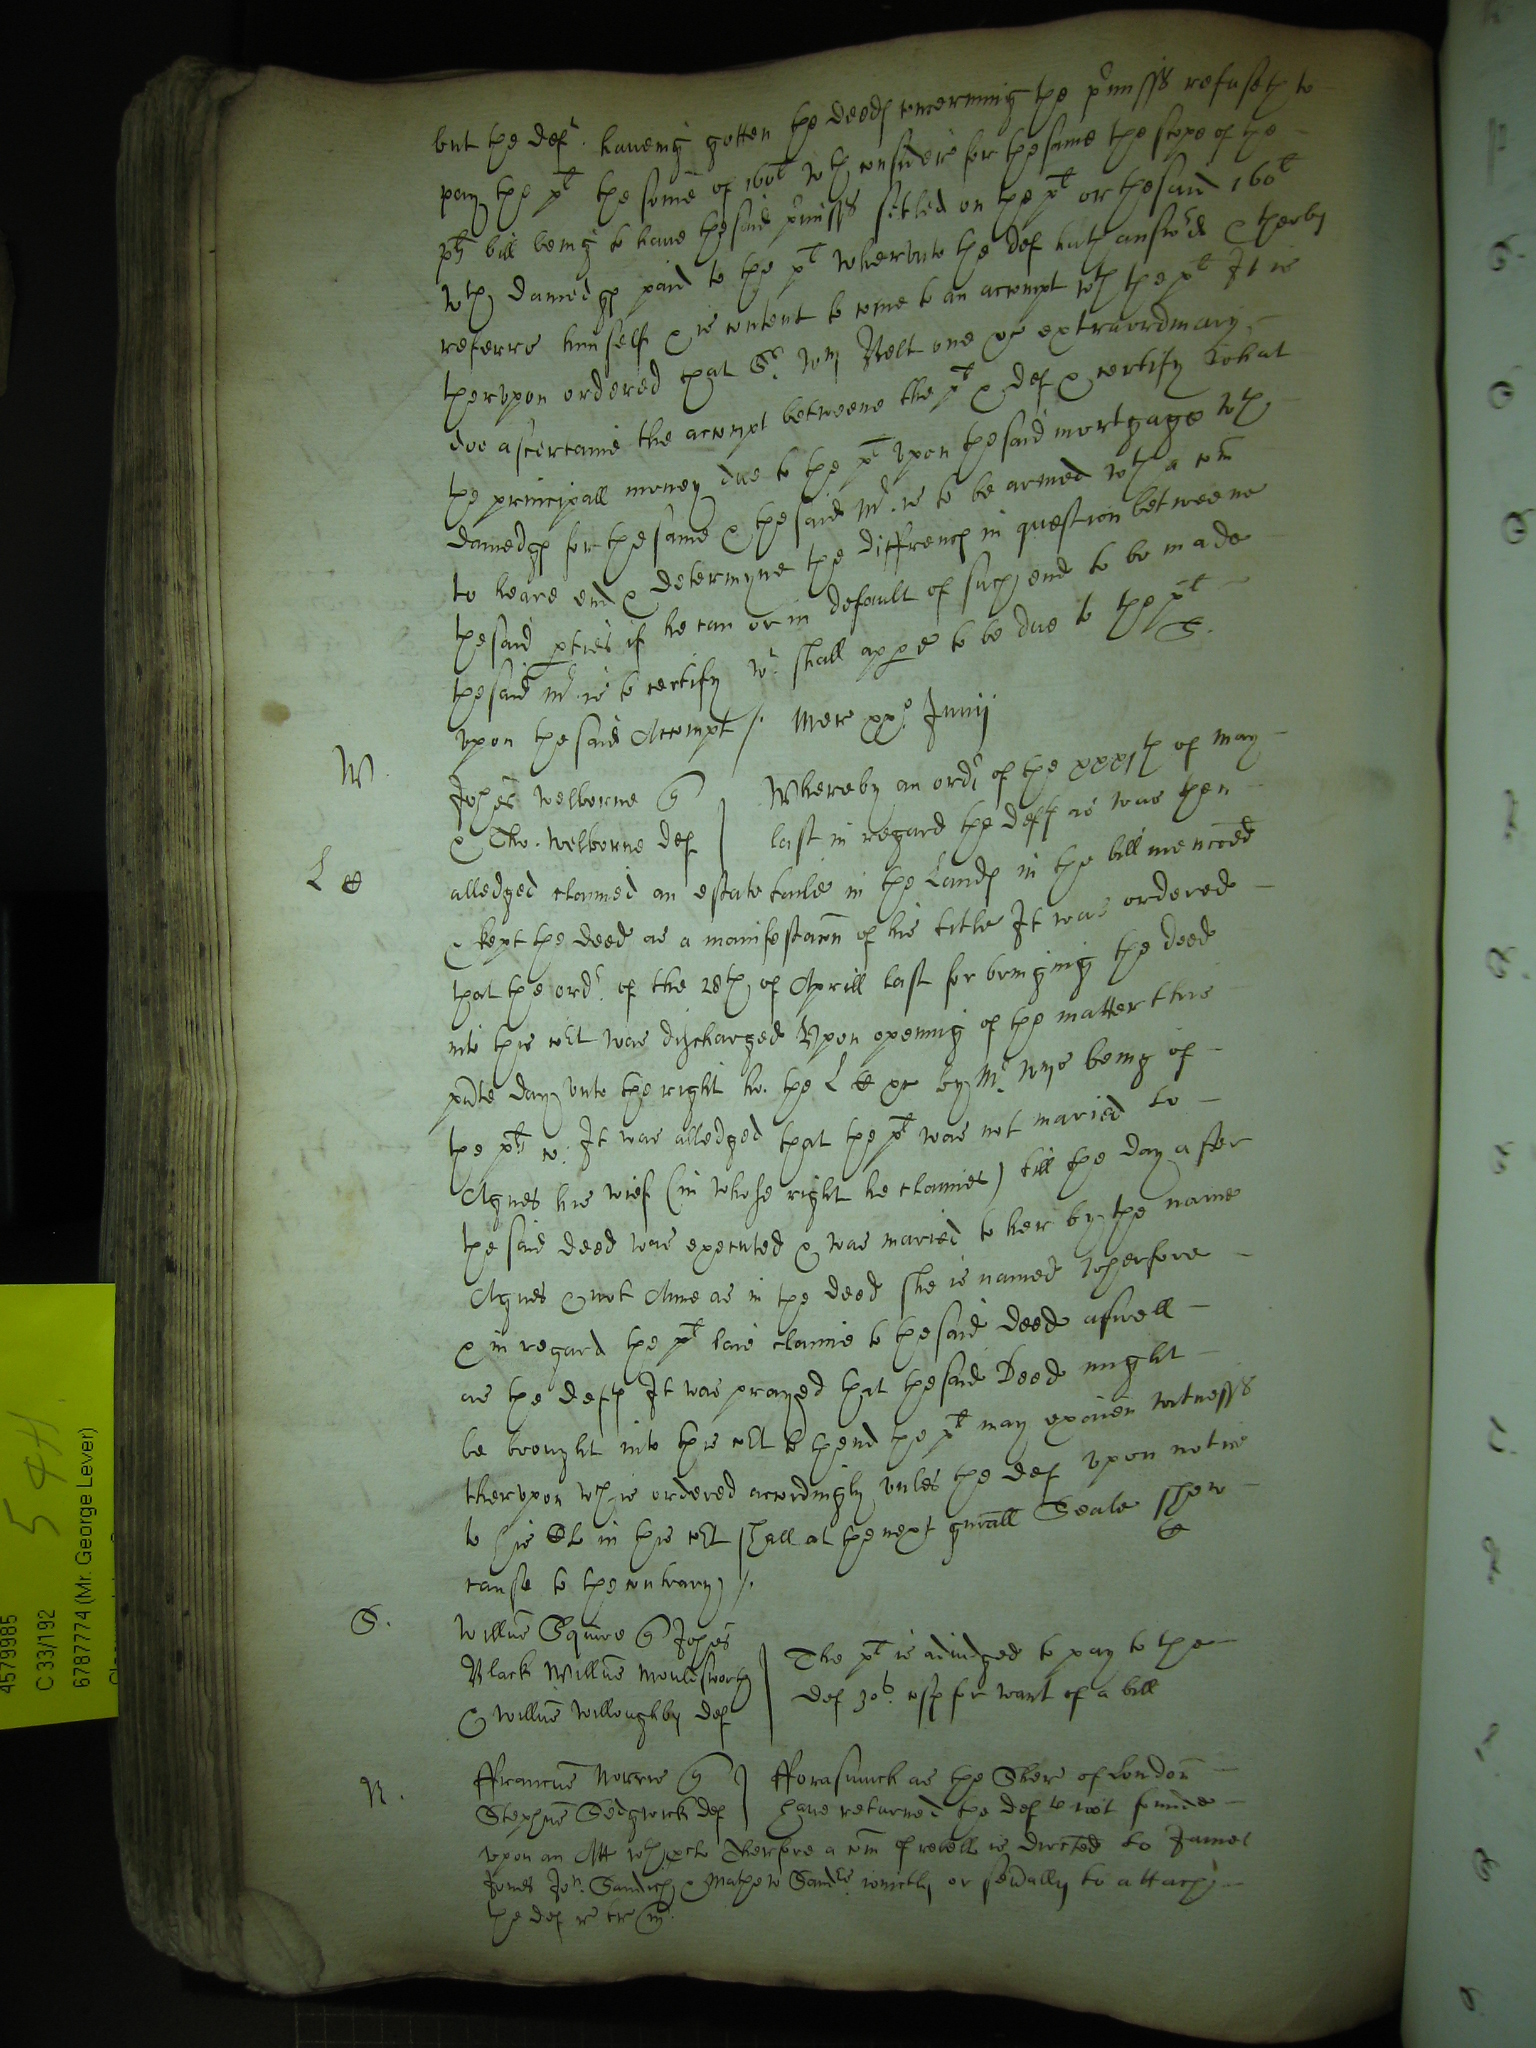 but the deft. haueing gotten the deeds concerning the p'misss refuseth to
pay the plt the some of 160l wth considere for the same the scope of the
plts bill being to haue the said p'misss setled on the plt or the said 160l
wth damedgs paid to the plt wherunto the def hath answ'ed & therby
referrs himself & is content to come to an accompt wth the plt It is
therupon ordered that Sr. Wm Belt one &c extraordinary
doe ascertaine the accompt betweene the plt & def & certify what
the principall money due to the plt upon the said mortgage wth
damedgs for the same & the said Mr. is to be armed wth a com
to heare end & determyne the diffrencs in question betweene
the said pties if he can or in default of such end to be made
the said Mr. is to certify wt. shall appe to be due to the plt
upon the said Accompt /. Mer xxo Junij
W.
Johes Welborne q
& Tho. Welborne def
Whereby an ordr of the xxxith of May
last in regard the defts as was then
alledged claimed an estate taile in the Lands in the bill menconed
& kept the deed as a manifestacon of his title It was ordered
that the ordr. of the 28th of Aprill last for bringing the deed
into this cort was discharged Upon opening of the matter this
pnte day unto the right ho. the L &c by Mr. Nye being of
the plts c. It was alledged that the plt was not maried to
Agnes his wief (in whose right he claimes) till the day after
the said deed was executed & was maried to her by the name
Agnes & not Anne as in the deed she is named wherfore
& in regard the plt laie claime to the said deed aswell
as the defts It was prayed that the said Deed might
be brought into this cort to thend the plt may examen witnesss
therupon wch is ordered accordingly unles the def upon notice
to his Clo in this cort shall at the next gnrall Seale shew
cause to the contrary /.
S.
Willus Squire q Johes
Black Willus Mouldsworth
& Willus Willoughby def
The plt is adiudged to pay to the
def 30s. costs for want of a bill
N.
ffrancus Norris q
Stephus Sedgwick def
fforasmuch as the Sher of London
haue returned the def not founde
upon an Att wth pcl Therfore a com of rebell is directed to James
Jones Jon. Sandich & Mathew Sands. ioinctly or seually to attach
the def
4579985
C 33/192
6787774 (Mr. George Lever)
544.